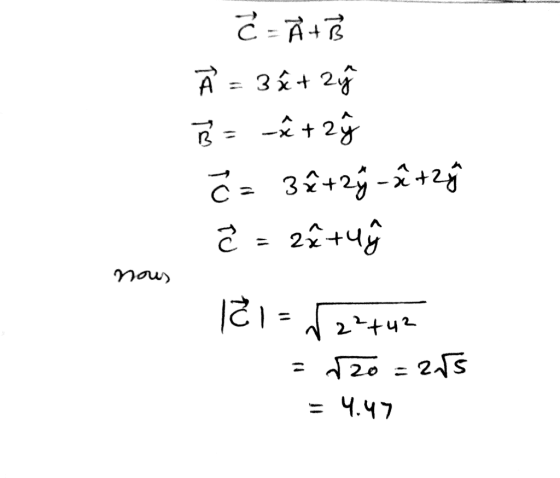 C⃗ = A⃗ + B⃗
A⃗ = 3x̂ + 2ŷ
B⃗ = -x̂ + 2ŷ
C⃗ = 3x̂ + 2ŷ - x̂ + 2ŷ
C⃗ = 2x̂ + 4ŷ
now,
|C⃗| = √(2² + 4²)
= √20 = 2√5
= 4.47